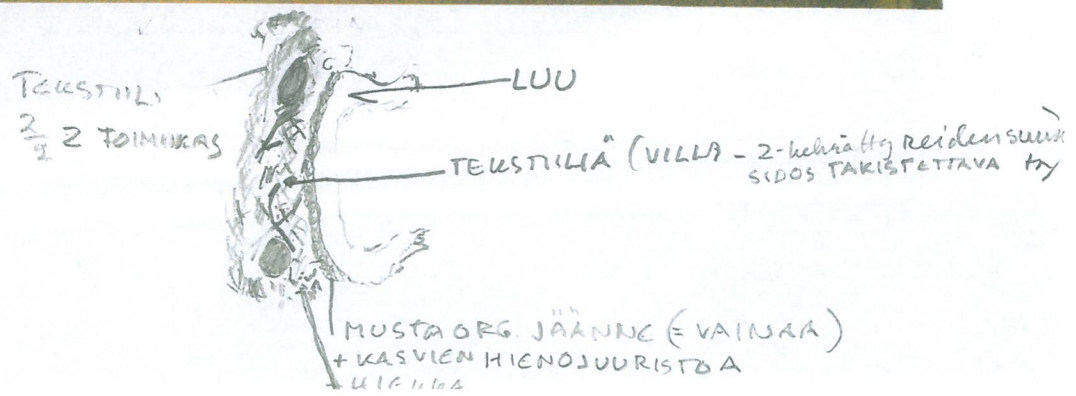 LUU
TEKSTIILI
2/2 Z TOIMIKAS
TEKSTIILIÄ (VILLA - Z-kehrätty
SIDOS TARKISTETTAVA
MUSTA ORG. JÄÄNNE (= VAINAA)
+ KASVIEN HIENOJUURISTOA
+ HIEKKA